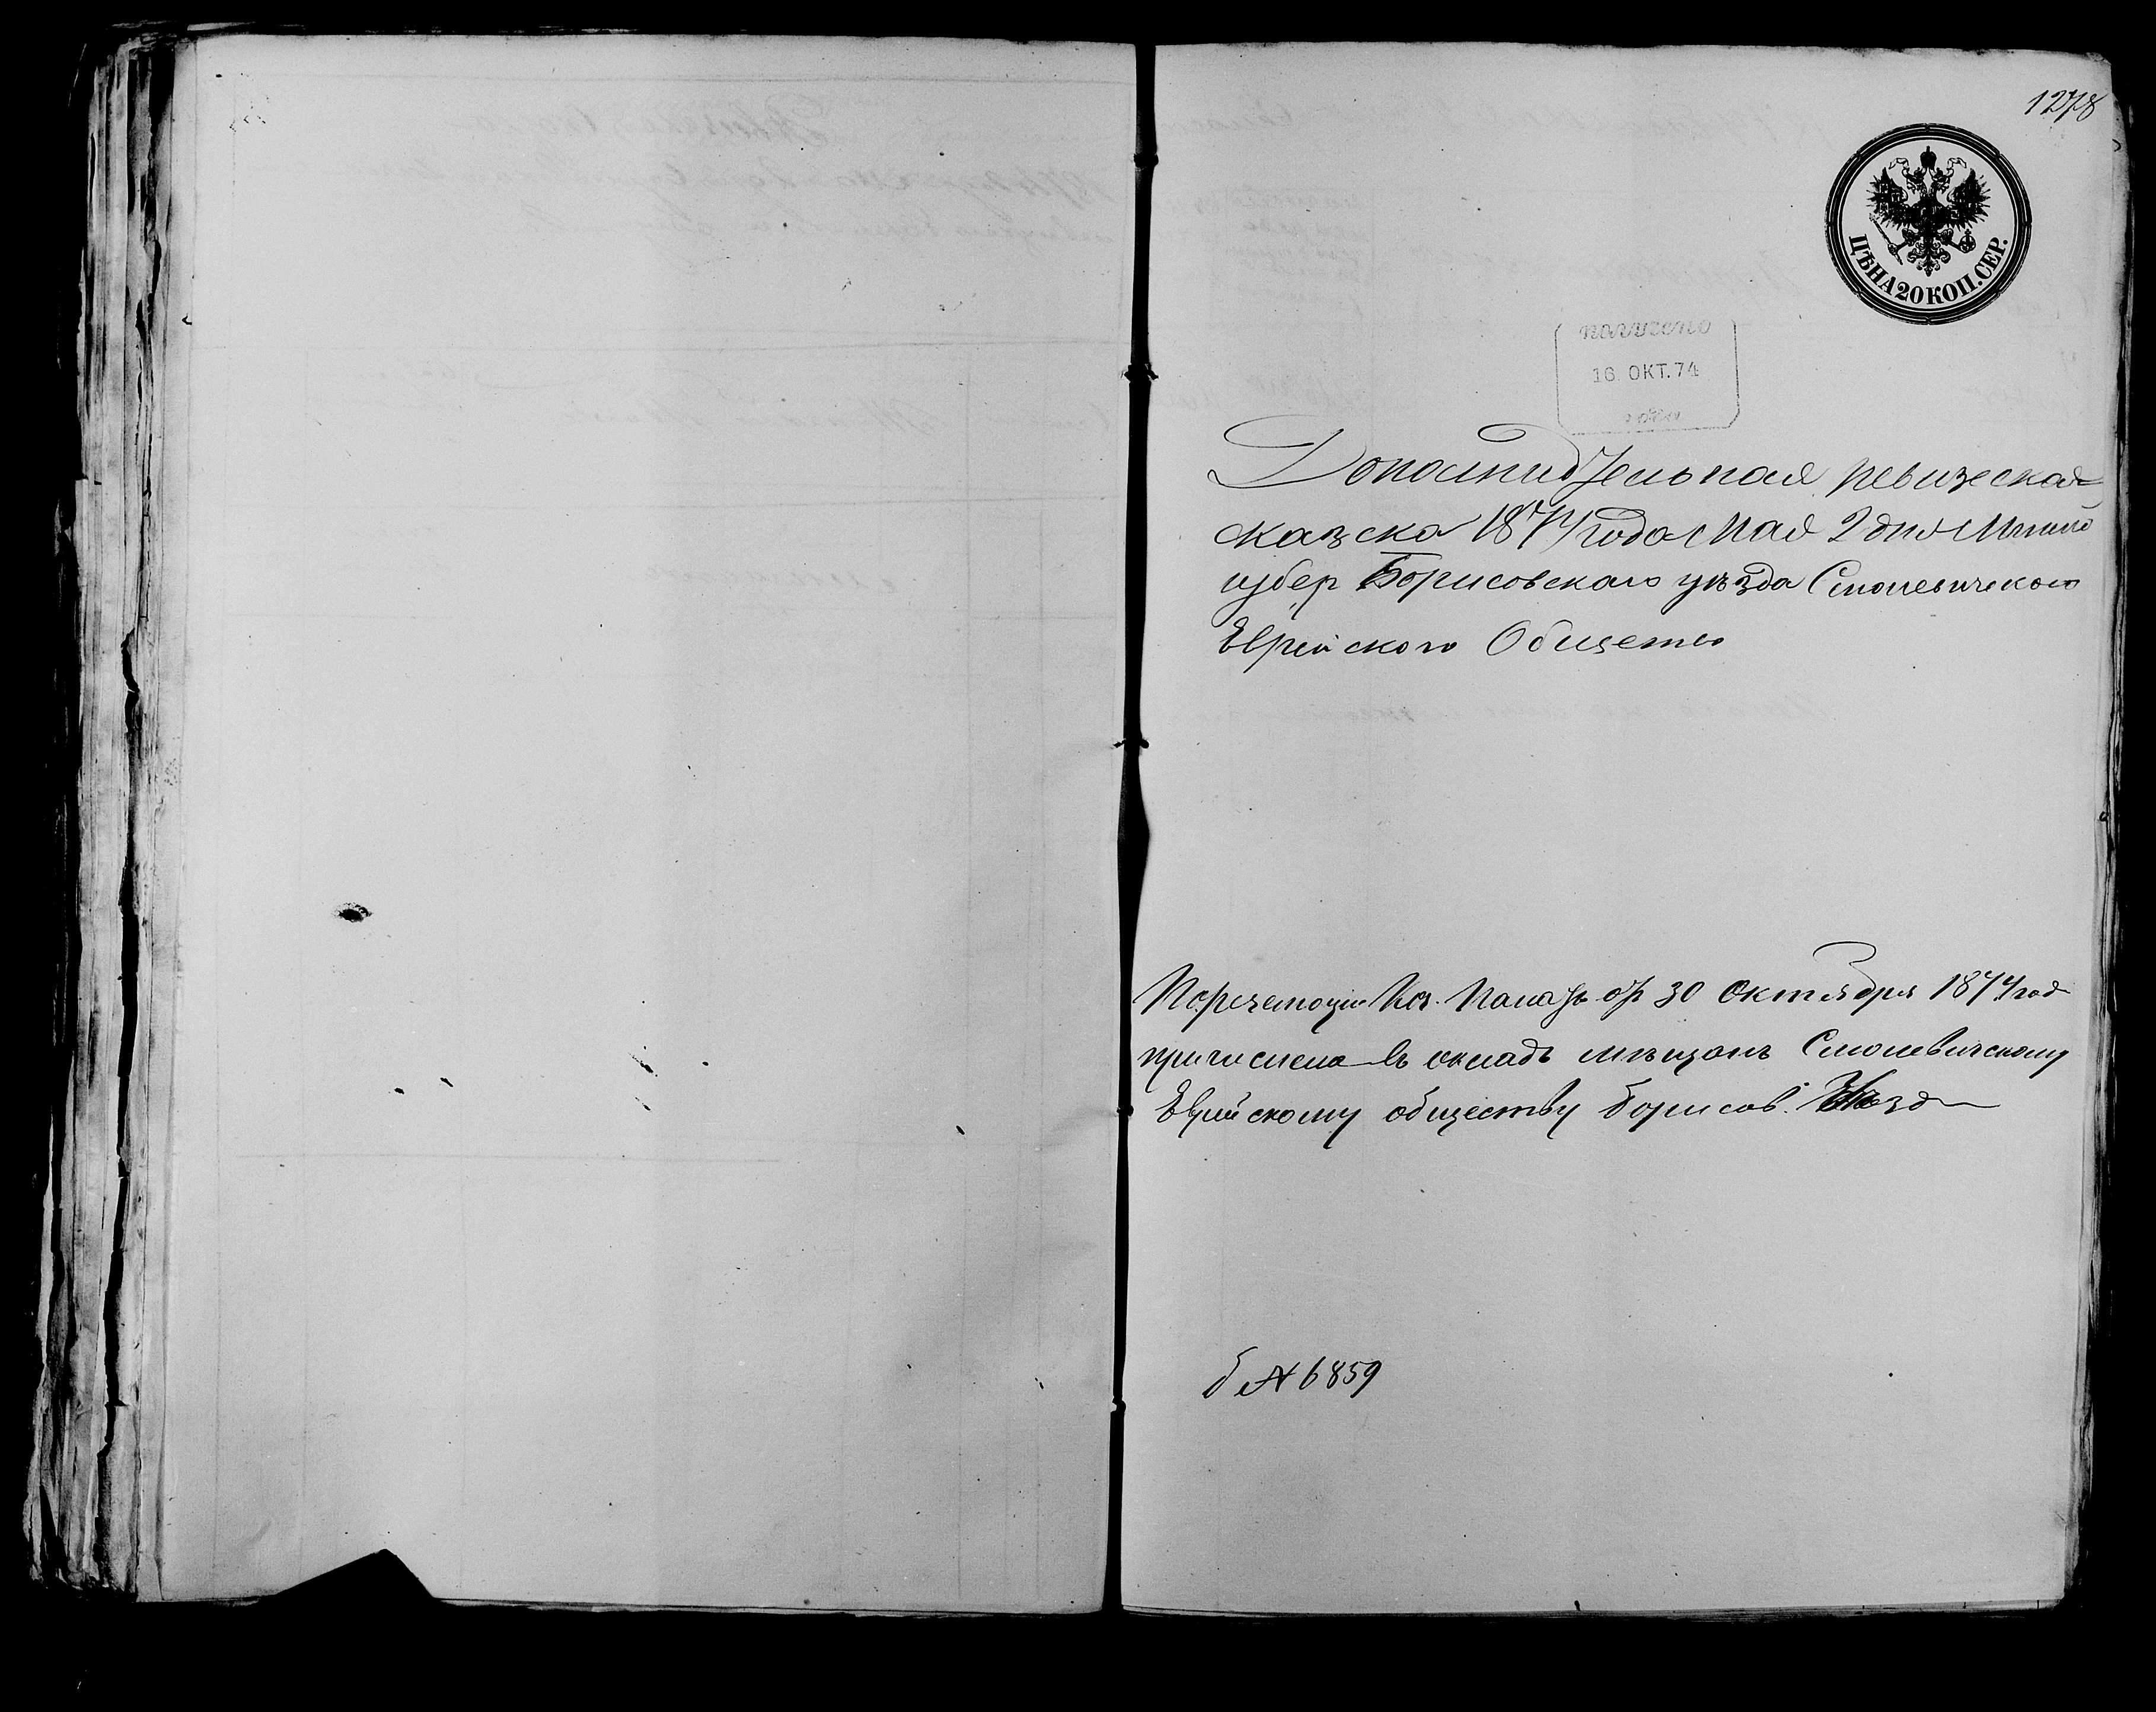 1278
ЦѢНА 20 КОП. СЕР.
получено
16 ОКТ. 74
Дополнительная ревизская
сказка 1874 года Мая 2 дня Минской
губер Борисовскаго уѣзда Смолевичского
Еврейского Общества
По резолюціи Каз. Палаты отъ 30 Октября 1874 год
причислена въ окладъ мѣщанъ Смолевичскому
Еврейскому обществу борисов. уѣзда
№ 6859